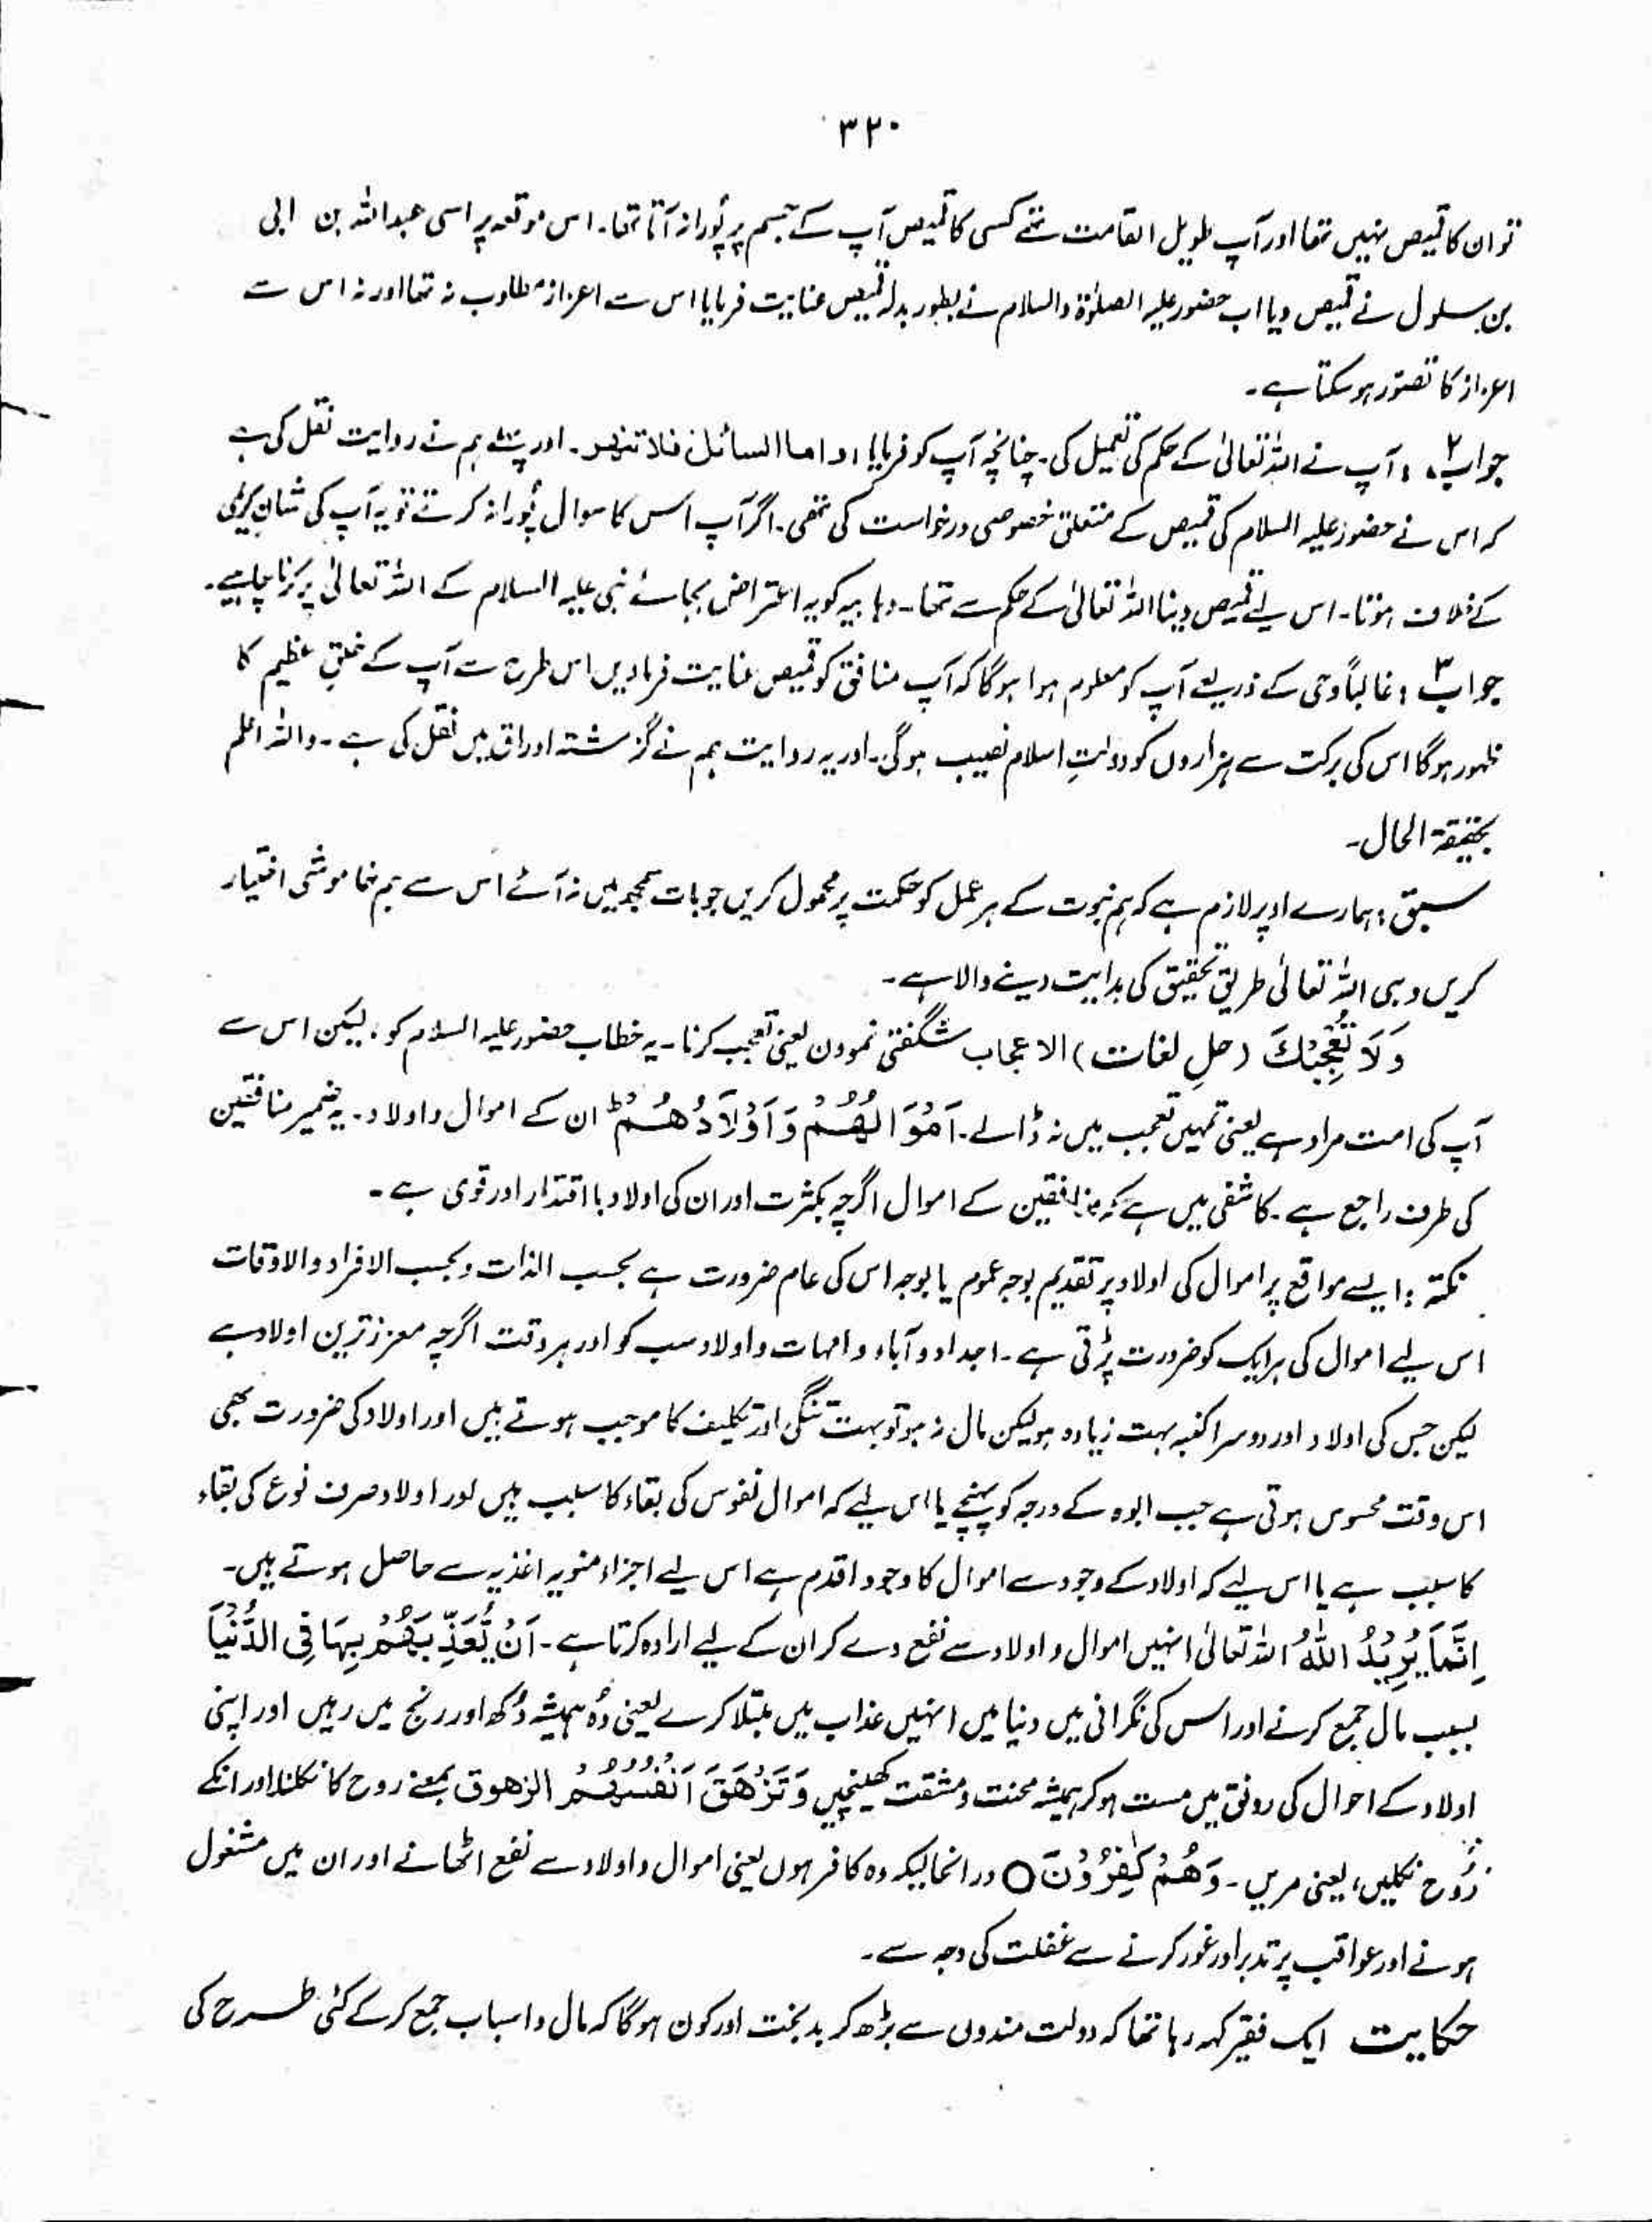 ۳۲۰
تو ان کا قمیص نہیں تھا اور آپ طویل القامت تھے کسی کا قمیص آپ کے جسم پر پُورا نہ آتا تھا۔ اس موقعہ پر اسی عبداللہ بن ابی
بن سلول نے قمیص دیا اب حضور علیہ الصلوٰۃ والسلام نے بطور بدلہ قمیص عنایت فرمایا اس سے اعزاز مطلوب نہ تھا اور نہ اس سے
اعزاز کا تصوّر ہو سکتا ہے۔
جواب ۲ : آپ نے اللہ تعالیٰ کے حکم کی تعمیل کی۔ چنانچہ آپ کو فرمایا : و اما السائل فلا تنہر۔ اور پہلے ہم نے روایت نقل کی ہے
کہ اس نے حضور علیہ السلام کی قمیص کے متعلق خصوصی درخواست کی تھی۔ اگر آپ اُس کا سوال پُورا نہ کرتے تو یہ آپ کی شانِ کریمی
کے خلاف ہوتا۔ اس لیے قمیص دینا اللہ تعالیٰ کے حکم سے تھا۔ وہابیہ کو یہ اعتراض بجائے نبی علیہ السلام کے اللہ تعالیٰ پر کرنا چاہیے۔
جواب ۳ : غالباً وحی کے ذریعے آپ کو معلوم ہوا ہوگا کہ آپ منافق کو قمیص عنایت فرمادیں اس طرح سے آپ کے خلقِ عظیم کا
ظہور ہوگا اس کی برکت سے ہزاروں کو دولتِ اسلام نصیب ہوگی۔ اور یہ روایت ہم نے گزشتہ اوراق میں نقل کی ہے۔ واللہ اعلم
بحقیقۃ الحال۔
سبق : ہمارے اوپر لازم ہے کہ ہم نبوت کے ہر عمل کو حکمت پر محمول کریں جو بات سمجھ میں نہ آئے اس سے ہم خاموشی اختیار
کریں وہی اللہ تعالیٰ طریقِ تحقیق کی ہدایت دینے والا ہے۔
وَلَا تُعْجِبْكَ (حلِ لغات) الاعجاب شگفتی نمودن یعنی تعجب کرنا۔ یہ خطاب حضور علیہ السلام کو، لیکن اس سے
آپ کی امت مراد ہے یعنی تمہیں تعجب میں نہ ڈالے۔ اَمْوَالُهُمْ وَاَوْلَادُهُمْ ط ان کے اموال و اولاد۔ یہ ضمیر منافقین
کی طرف راجع ہے۔ کاشفی میں ہے کہ منافقین کے اموال اگرچہ بکثرت اور ان کی اولاد با اقتدار اور قوی ہے۔
نکتہ : ایسے مواقع پر اموال کی اولاد پر تقدیم بوجہ عموم یا بوجہ اس کی عام ضرورت ہے بحسب الذات و بحسب الافراد والاوقات
اس لیے اموال کی ہر ایک کو ضرورت پڑتی ہے۔ اجداد و آباء و امہات و اولاد سب کو اور ہر وقت اگرچہ معزز ترین اولاد ہے
لیکن جس کی اولاد اور دوسرا کنبہ بہت زیادہ ہو لیکن مال نہ ہو تو بہت تنگی اور تکلیف کا موجب ہوتے ہیں اور اولاد کی ضرورت بھی
اس وقت محسوس ہوتی ہے جب ابوہ کے درجہ کو پہنچے یا اس لیے کہ اموال نفوس کی بقاء کا سبب ہیں اور اولاد صرف نوع کی بقاء
کا سبب ہے یا اس لیے کہ اولاد کے وجود سے اموال کا وجود اقدم ہے اس لیے اجزاء منویہ اغذیہ سے حاصل ہوتے ہیں۔
اِنَّمَا يُرِيْدُ اللّٰهُ اللہ تعالیٰ انہیں اموال و اولاد سے نفع دے کر ان کے لیے ارادہ کرتا ہے۔ اَنْ يُّعَذِّبَهُمْ بِهَا فِى الدُّنْيَا
بسبب مال جمع کرنے اور اس کی نگرانی میں دنیا میں انہیں عذاب میں مبتلا کرے یعنی وُہ ہمیشہ دُکھ اور رنج میں رہیں اور اپنی
اولاد کے احوال کی رونق میں مست ہو کر ہمیشہ محنت و مشقت کھینچیں وَتَزْهَقَ اَنْفُسُهُمْ الزھوق بمعنے روح کا نکلنا اور انکے
رُوح نکلیں، یعنی مریں۔ وَهُمْ كٰفِرُوْنَ ○ درانحالیکہ وہ کافر ہوں یعنی اموال و اولاد سے نفع اٹھانے اور ان میں مشغول
ہونے اور عواقب پر تدبر اور غور کرنے سے غفلت کی وجہ سے۔
حکایت ایک فقیر کہہ رہا تھا کہ دولت مندوں سے بڑھ کر بدبخت اور کون ہوگا کہ مال و اسباب جمع کر کے کئی طرح کی